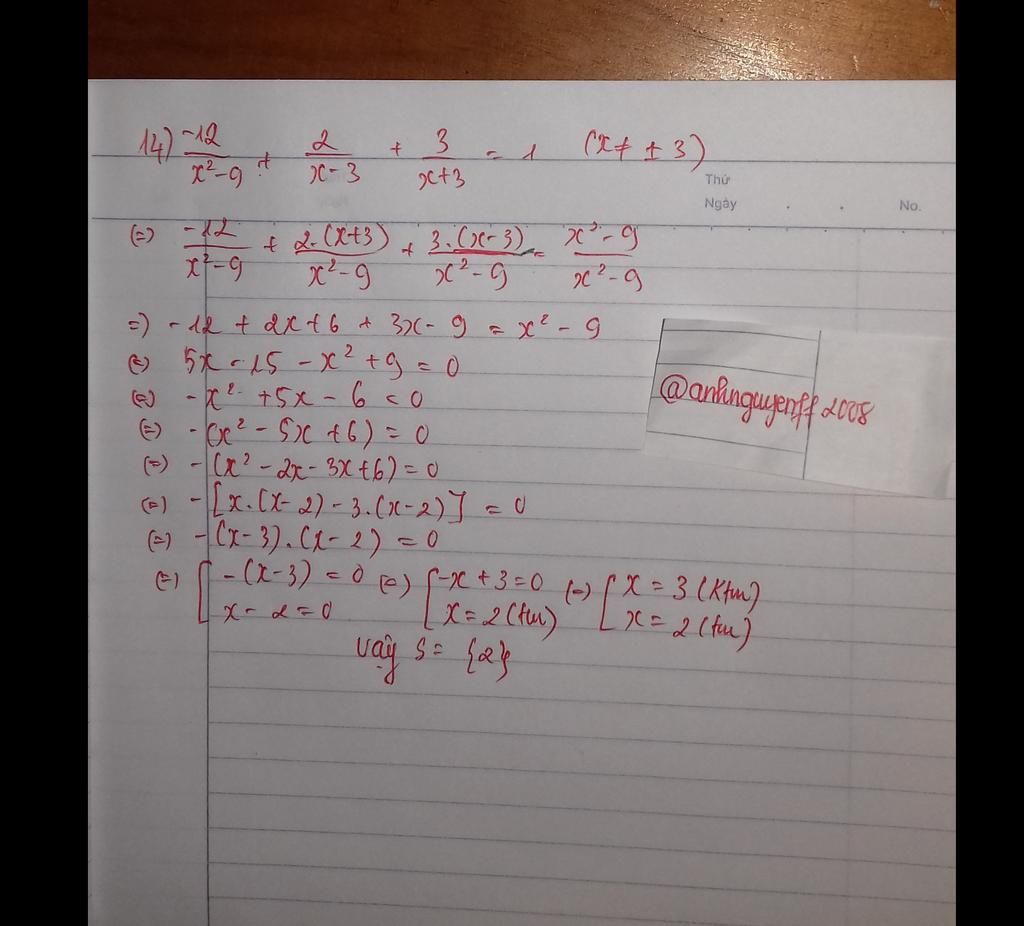 14) -12/x²-9 + 2/x-3 + 3/x+3 = 1 (x ≠ ± 3)
Thứ
Ngày . . No.
(=) -12/x²-9 + 2.(x+3)/x²-9 + 3.(x-3)/x²-9 = x²-9/x²-9
=) -12 + 2x+6 + 3x-9 = x² - 9
(=) 5x - 15 - x² + 9 = 0
(=) -x² + 5x - 6 = 0
(=) -(x² - 5x + 6) = 0
(=) -(x² - 2x - 3x + 6) = 0
(=) -[x.(x-2) - 3.(x-2)] = 0
(=) -(x-3).(x-2) = 0
(=) [ -(x-3) = 0 (=) [ -x + 3 = 0 (=) [ x = 3 (Ktm)
x - 2 = 0 x = 2 (tm) x = 2 (tm)
vậy S = {2}
@anhnguyenff2008